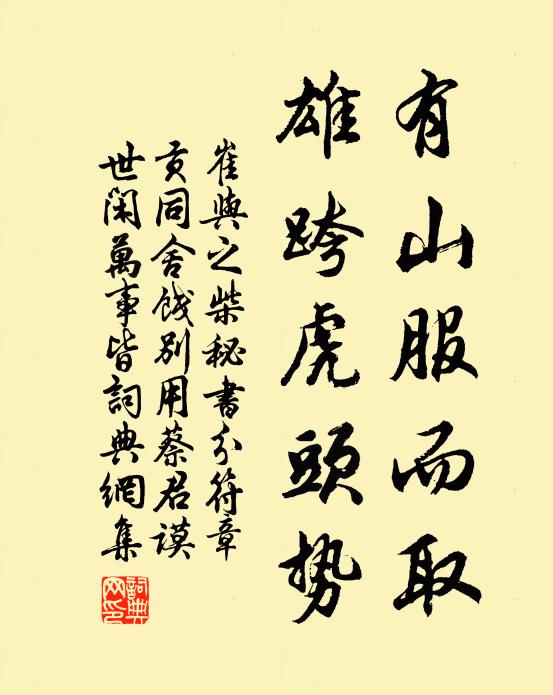 有山服而取
雄跨虎頭勢
崔與之柴秘書分符章
貢同舍餞別用蔡君謨
世閑萬事皆詞典網集
詞典
网印